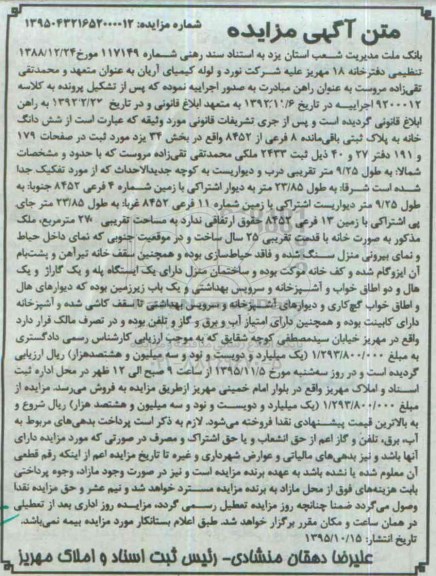 متن آگهی مزایده
شماره مزایده: ۱۳۹۵۰۴۳۲۱۶۵۲۰۰۰۰۱۲
بانک ملت مدیریت شعب استان یزد به استناد سند رهنی شماره ۱۱۷۱۴۹ مورخ ۱۳۸۸/۱۲/۲۴
تنظیمی دفترخانه ۱۸ مهریز علیه شرکت نورد و لوله کیمیای آریان به عنوان متعهد و محمدتقی
تقی‌زاده مروست به عنوان راهن مبادرت به صدور اجراییه نموده که پس از تشکیل پرونده به کلاسه
۹۲۰۰۰۱۲ اجراییه در تاریخ ۱۳۹۲/۱/۶ به متعهد ابلاغ قانونی و در تاریخ ۱۳۹۲/۲/۲۳ به راهن
ابلاغ قانونی گردیده است و پس از جری تشریفات قانونی مورد وثیقه که عبارت است از شش دانگ
خانه به پلاک ثبتی باقی‌مانده ۸ فرعی از ۸۴۵۲ واقع در بخش ۳۴ یزد مورد ثبت در صفحات ۱۷۹
و ۱۹۱ دفتر ۲۷ و ۴۰ ذیل ثبت ۲۴۳۳ ملکی محمدتقی تقی‌زاده مروست که با حدود و مشخصات
شمالا: به طول ۹/۲۵ متر تقریبی درب و دیواریست به کوچه جدیدالاحداث که از مورد تفکیک جدا
شده است شرقا: به طول ۲۳/۸۵ متر به دیوار اشتراکی با زمین شماره ۴ فرعی ۸۴۵۲ جنوبا: به
طول ۹/۲۵ متر دیواریست اشتراکی با زمین شماره ۱۱ فرعی ۸۴۵۲ غربا: به طول ۲۳/۸۵ متر جای
پی اشتراکی با زمین ۱۳ فرعی ۸۴۵۲ حقوق ارتفاقی ندارد به مساحت تقریبی ۲۷۰ مترمربع، ملک
مذکور به صورت خانه با قدمت تقریبی ۲۵ سال ساخت و در موقعیت جنوبی که نمای داخل حیاط
و نمای بیرونی منزل سنگ شده و فاقد حیاط‌سازی بوده و همچنین سقف خانه تیرآهن و پشت‌بام
آن ایزوگام شده و کف خانه موکت بوده و ساختمان منزل دارای یک ایستگاه پله و یک گاراژ و یک
هال و دو اطاق خواب و آشپزخانه و سرویس بهداشتی و یک باب زیرزمین بوده که دیوارهای هال
و اطاق خواب گچ‌کاری و دیوارهای آشپزخانه و سرویس بهداشتی تا سقف کاشی شده و آشپزخانه
دارای کابینت بوده و همچنین دارای امتیاز آب و برق و گاز و تلفن بوده و در تصرف مالک قرار دارد
واقع در مهریز خیابان سیدمصطفی کوچه شقایق که به موجب ارزیابی کارشناس رسمی دادگستری
به مبلغ ۱/۲۹۳/۸۰۰/۰۰۰ (یک میلیارد و دویست و نود و سه میلیون و هشتصدهزار) ریال ارزیابی
گردیده است و در روز سه‌شنبه مورخ ۱۳۹۵/۱۱/۵ از ساعت ۹ صبح الی ۱۲ ظهر در محل اداره ثبت
اسناد و املاک مهریز واقع در بلوار امام خمینی مهریز ازطریق مزایده به فروش می‌رسد. مزایده از
مبلغ ۱/۲۹۳/۸۰۰/۰۰۰ (یک میلیارد و دویست و نود و سه میلیون و هشتصد هزار) ریال شروع و
به بالاترین قیمت پیشنهادی نقدا فروخته می‌شود. لازم به ذکر است پرداخت بدهی‌های مربوط به
آب، برق، تلفن و گاز اعم از حق انشعاب و یا حق اشتراک و مصرف در صورتی که مورد مزایده دارای
آنها باشد و نیز بدهی‌های مالیاتی و عوارض شهرداری و غیره تا تاریخ مزایده اعم از اینکه رقم قطعی
آن معلوم شده یا نشده باشد به عهده برنده مزایده است و نیز در صورت وجود مازاد، وجوه پرداختی
بابت هزینه‌های فوق از محل مازاد به برنده مزایده مسترد خواهد شد و نیم عشر و حق مزایده نقدا
وصول می‌گردد ضمنا چنانچه روز مزایده تعطیل رسمی گردد، مزایده روز اداری بعد از تعطیلی
در همان ساعت و مکان مقرر برگزار خواهد شد. طبق اعلام بستانکار مورد مزایده بیمه نمی‌باشد.
تاریخ انتشار: ۱۳۹۵/۱۰/۱۵
علیرضا دهقان منشادی- رئیس ثبت اسناد و املاک مهریز